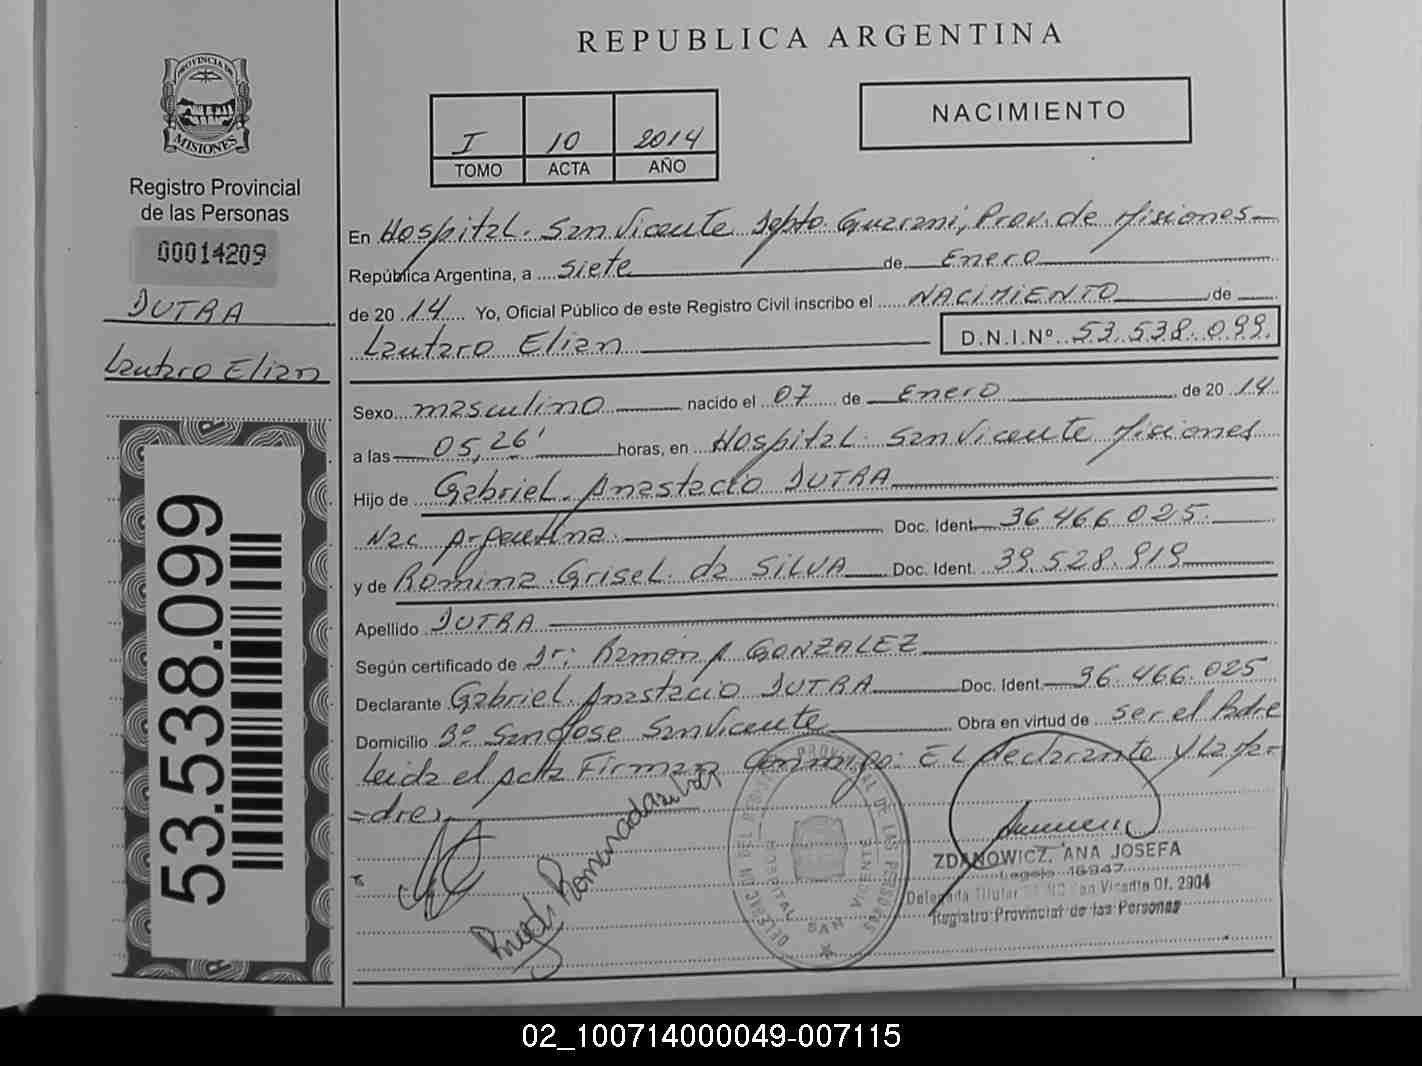 REPUBLICA ARGENTINA
PROVINCIA DE
MISIONES
Registro Provincial
de las Personas
00014209
DUTRA
Lautaro Elian
53.538.099
I 10 2014
TOMO ACTA AÑO
NACIMIENTO
En Hospital. San Vicente Depto. Guarani, Prov. de Misiones
República Argentina, a siete de Enero
de 2014 Yo, Oficial Público de este Registro Civil inscribo el NACIMIENTO de
Lautaro Elian D.N.I.Nº 53.538.099.
Sexo masculino nacido el 07 de Enero de 2014
a las 05,26' horas, en Hospital. San Vicente Misiones
Hijo de Gabriel Anastacio DUTRA
Nac Argentina Doc. Ident. 36.466.025
y de Romina Grisel da SILVA Doc. Ident. 39.528.919
Apellido DUTRA
Según certificado de Dr: Ramon A GONZALEZ
Declarante Gabriel Anastacio DUTRA Doc. Ident. 36.466.025
Domicilio Bº San Jose San Vicente Obra en virtud de ser el Padre
Leida el acta Firman Conmigo: El declarante y la Ma-
=dre.
DELEGACION DEL REGISTRO PROVINCIAL DE LAS PERSONAS
HOSPITAL SAN VICENTE
ZDANOWICZ, ANA JOSEFA
Legajo 16947
Delegada Titular San Vicente Of. 2904
Registro Provincial de las Personas
02_100714000049-007115